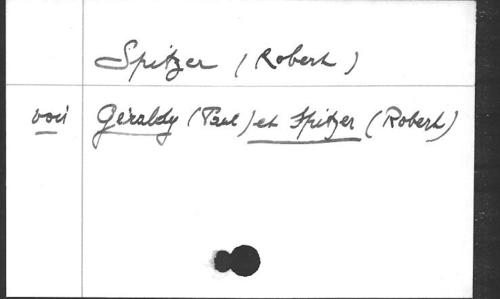 Spitzer (Robert)
voir Géraldy (Paul) et Spitzer (Robert)